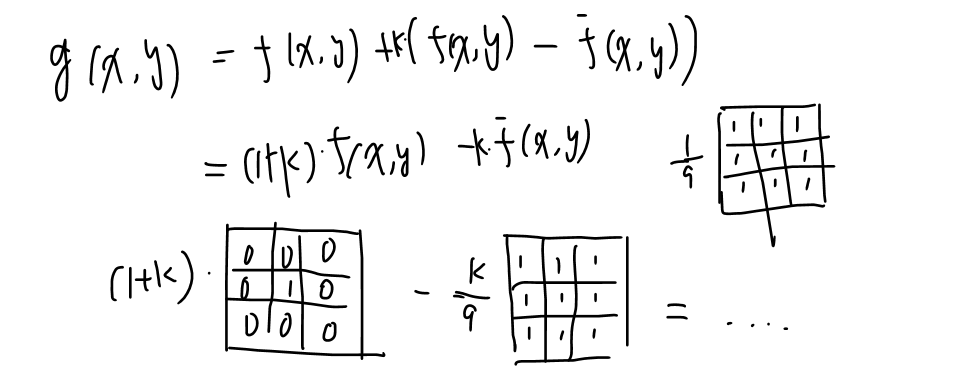 g(x,y) = f(x,y) + k(f(x,y) - f̄(x,y))
= (1+k)·f(x,y) - k·f̄(x,y)
1/9
1 1 1
1 1 1
1 1 1
(1+k)·
0 0 0
0 1 0
0 0 0
- k/9
1 1 1
1 1 1
1 1 1
= ....